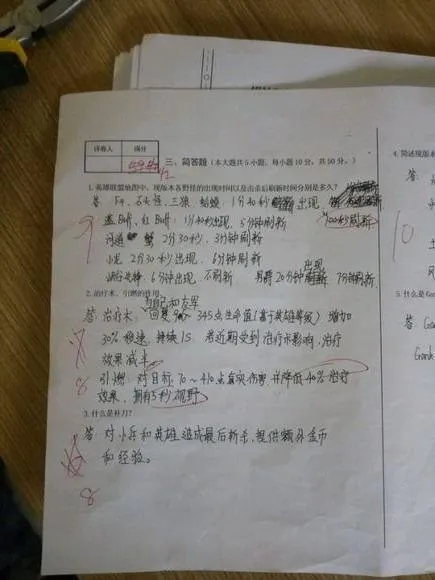 评卷人 得分
三、简答题（本大题共5小题，每小题10分，共50分。）
1.英雄联盟地图中，现版本各野怪的出现时间以及击杀后刷新时间分别是多久？
答 F4、石头怪、三狼、蛤蟆：1分40秒出现，
100秒刷新
9
蓝Buff、红Buff：1分40秒出现，5分钟刷新
河道蟹 2分30秒，3分钟刷新
小龙 2分30秒出现，6分钟刷新
峡谷先锋，6分钟出现，不刷新 男爵20分钟出现 7分钟刷新
2.治疗术、引燃的作用
与自己和友军
答 治疗术：回复 345点生命值(基于英雄等级) 增加
30%移速，持续1S。若近期受到治疗术影响，治疗
效果减半
8
引燃：对目标70~410点真实伤害，并降低40%治疗
效果，拥有5秒视野
3.什么是补刀？
答 对小兵和英雄造成最后斩杀，提供额外金币
和经验。
8
4.简述现版本
答
10
5.什么是Gank
答